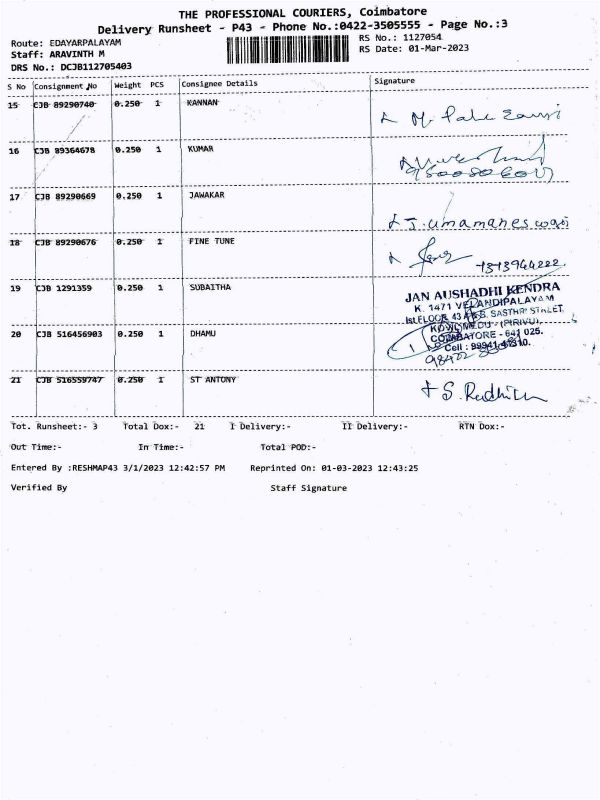 THE PROFESSIONAL COURIERS, Coimbatore
Delivery Runsheet - P43 - Phone No.:0422-3505555 - Page No.:3
Route: EDAYARPALAYAM RS No.: 1127054
Staff: ARAVINTH M RS Date: 01-Mar-2023
DRS No.: DCJB112705403
S No Consignment No Weight PCS Consignee Details Signature
15 CJB 89290740 0.250 1 KANNAN
16 CJB 89364678 0.250 1 KUMAR
17 CJB 89290669 0.250 1 JAWAKAR
J. umamaheswari
18 CJB 89290676 0.250 1 FINE TUNE
19 CJB 1291359 0.250 1 SUBAITHA
JAN AUSHADHI KENDRA
K. 1471 VELANDIPALAYAM
SASTHRI STREET,
COIMBATORE - 641 025.
20 CJB 516456903 0.250 1 DHAMU
Cell : 99941
21 CJB 516559747 0.250 1 ST ANTONY
Tot. Runsheet:- 3 Total Dox:- 21 I Delivery:- II Delivery:- RTN Dox:-
Out Time:- In Time:- Total POD:-
Entered By :RESHMAP43 3/1/2023 12:42:57 PM Reprinted On: 01-03-2023 12:43:25
Verified By Staff Signature